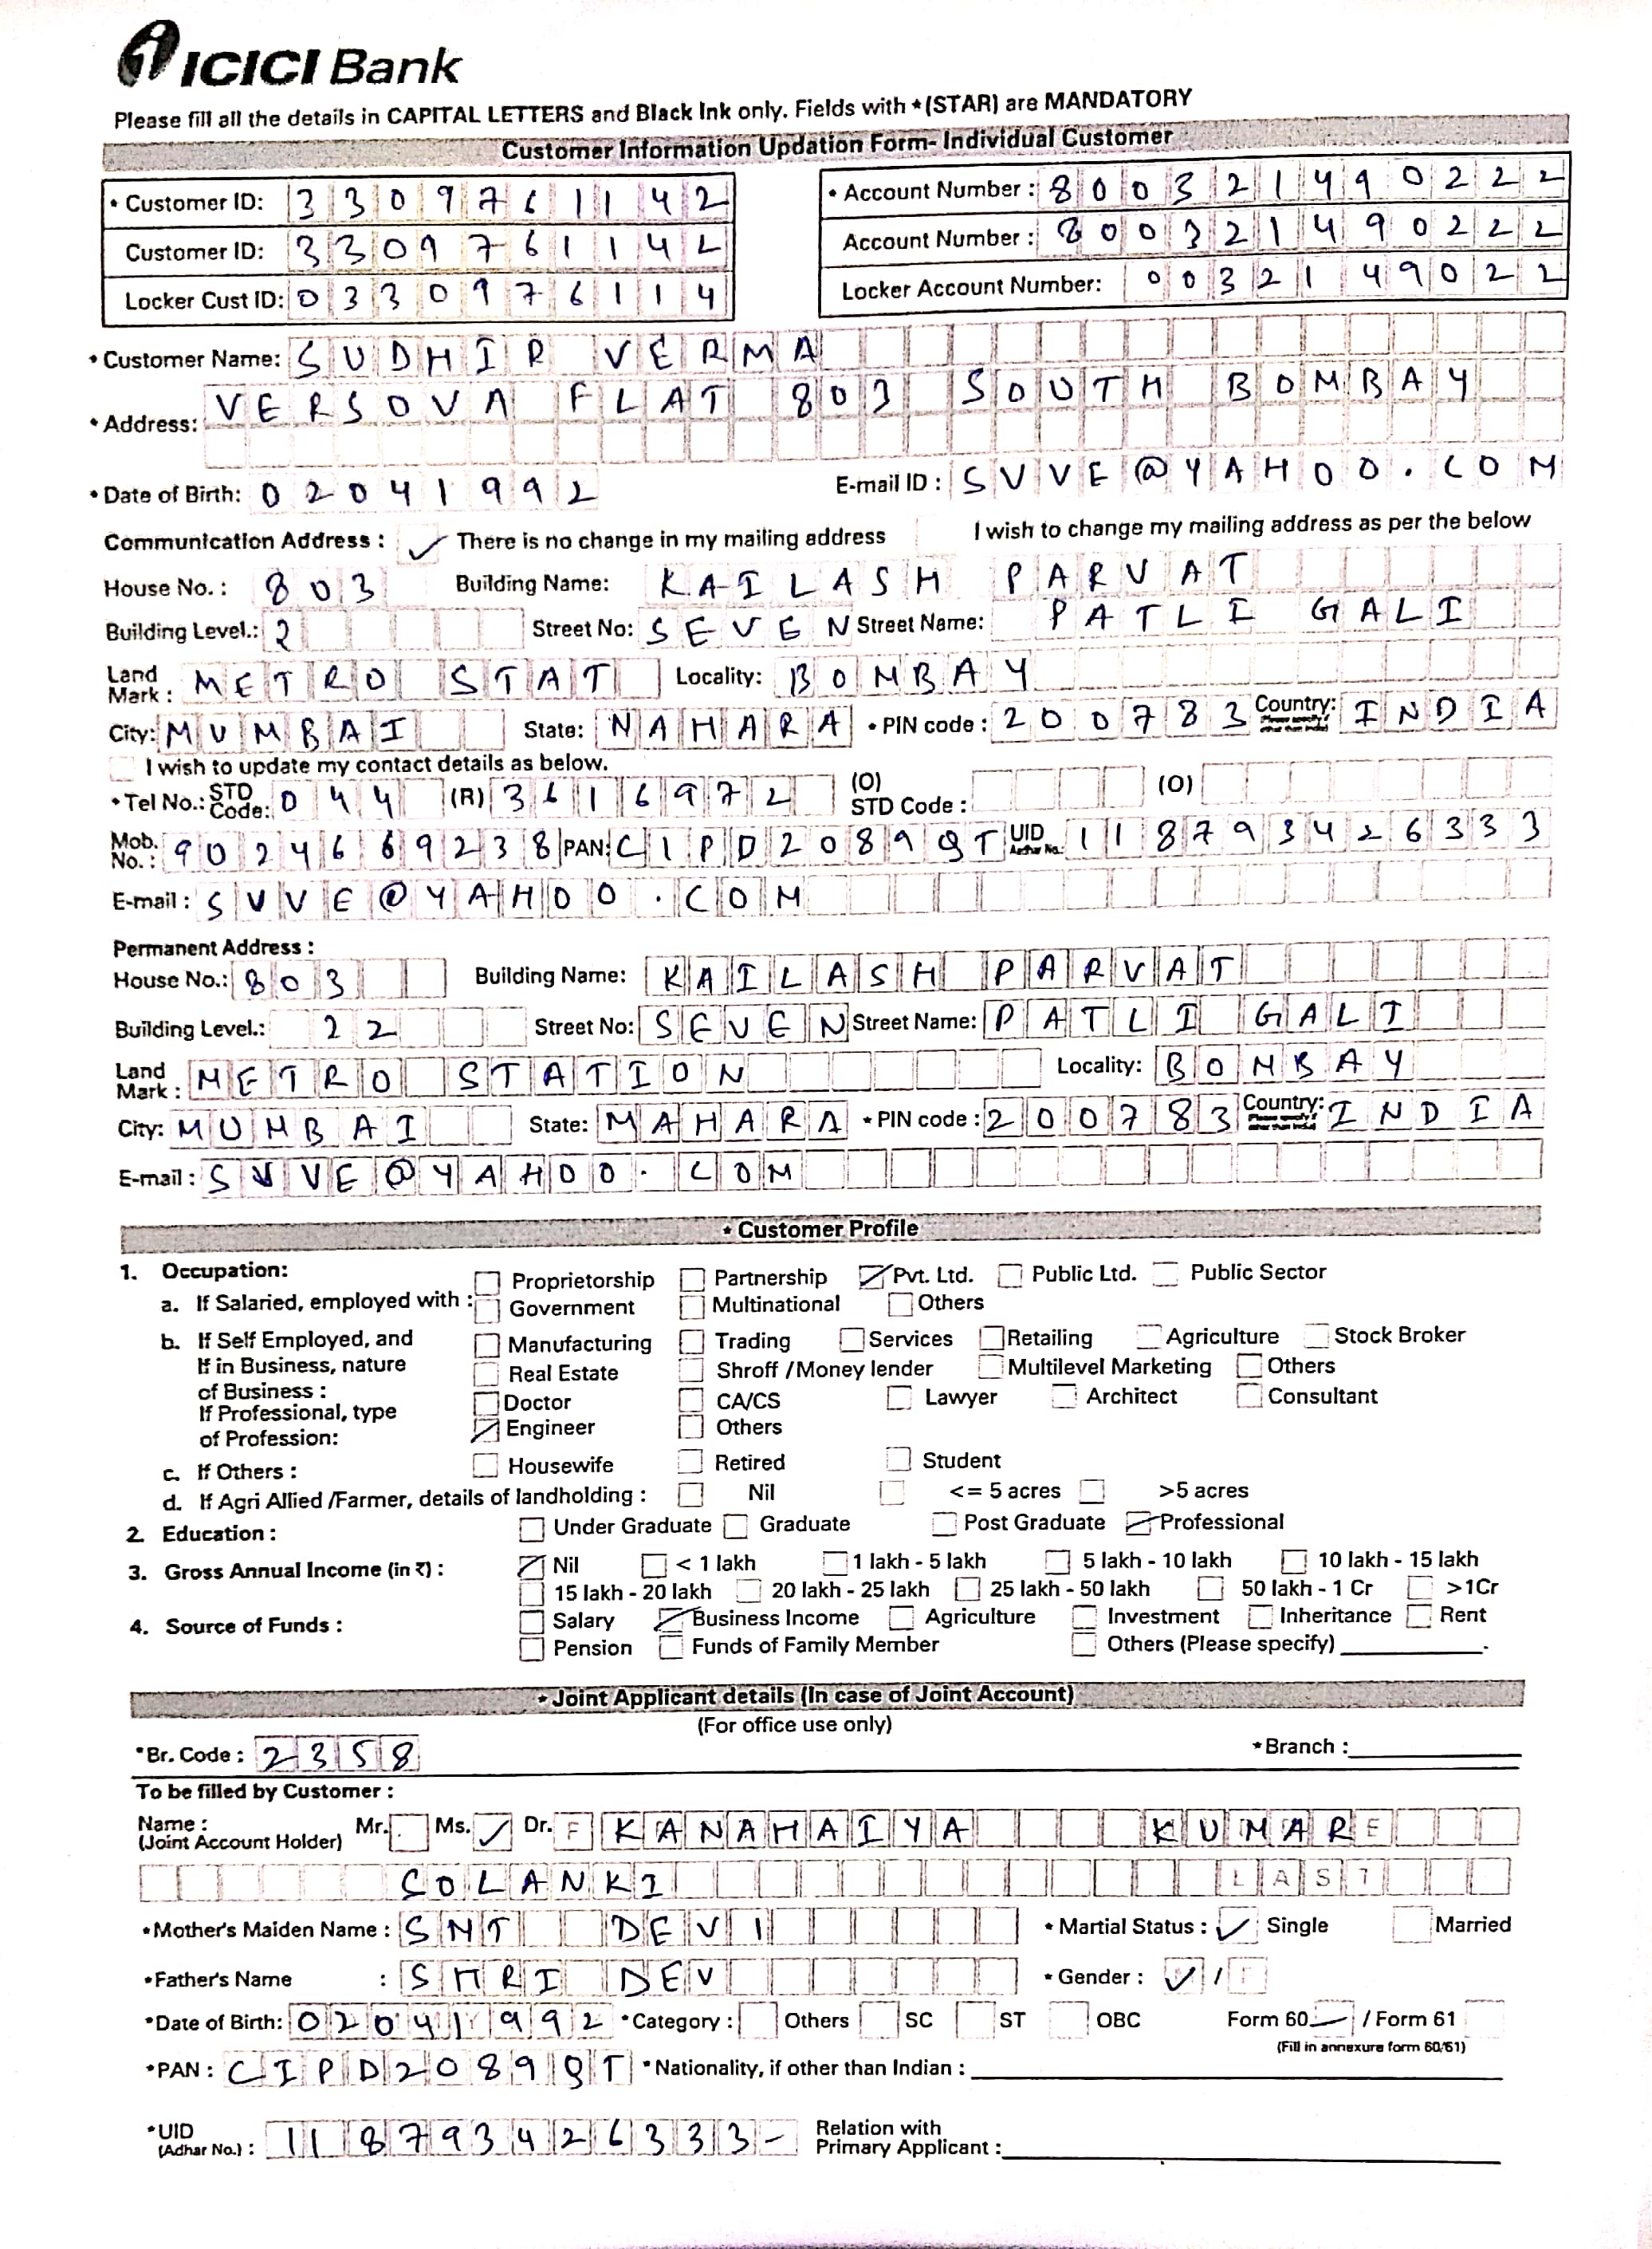 ICICI Bank
Please fill all the details in CAPITAL LETTERS and Black Ink only. Fields with *(STAR) are MANDATORY
Customer Information Updation Form- Individual Customer
* Customer ID: 3309761142 * Account Number : 800321490222
Customer ID: 3309761142 Account Number : 800321490222
Locker Cust ID: 0330976114 Locker Account Number: 0032149022
* Customer Name: SUDHIR VERMA
* Address: VERSOVA FLAT 803 SOUTH BOMBAY
* Date of Birth: 02041992 E-mail ID : SVVE@YAHOO.COM
Communication Address : There is no change in my mailing address I wish to change my mailing address as per the below
House No. : 803 Building Name: KAILASH PARVAT
Building Level.: 2 Street No: SEVEN Street Name: PATLI GALI
Land Mark : METRO STAT Locality: BOMBAY
City: MUMBAI State: NAHARA * PIN code : 200783 Country: INDIA
I wish to update my contact details as below.
* Tel No.: STD Code: 044 (R) 3616972 (O) STD Code : (O)
Mob. No. : 9024669238 PAN: CIPD2089QT UID Adhar No.: 118793426333
E-mail : SVVE@YAHOO.COM
Permanent Address :
House No.: 803 Building Name: KAILASH PARVAT
Building Level.: 22 Street No: SEVEN Street Name: PATLI GALI
Land Mark : METRO STATION Locality: BOMBAY
City: MUMBAI State: MAHARA * PIN code : 200783 Country: INDIA
E-mail : SVVE@YAHOO.COM
* Customer Profile
1. Occupation:
a. If Salaried, employed with : Proprietorship Partnership Pvt. Ltd. Public Ltd. Public Sector
Government Multinational Others
b. If Self Employed, and Manufacturing Trading Services Retailing Agriculture Stock Broker
If in Business, nature of Business : Real Estate Shroff /Money lender Multilevel Marketing Others
If Professional, type Doctor CA/CS Lawyer Architect Consultant
of Profession: Engineer Others
c. If Others : Housewife Retired Student
d. If Agri Allied /Farmer, details of landholding : Nil <= 5 acres >5 acres
2. Education : Under Graduate Graduate Post Graduate Professional
3. Gross Annual Income (in ₹) : Nil < 1 lakh 1 lakh - 5 lakh 5 lakh - 10 lakh 10 lakh - 15 lakh
15 lakh - 20 lakh 20 lakh - 25 lakh 25 lakh - 50 lakh 50 lakh - 1 Cr >1Cr
4. Source of Funds : Salary Business Income Agriculture Investment Inheritance Rent
Pension Funds of Family Member Others (Please specify)
* Joint Applicant details (In case of Joint Account)
(For office use only)
*Br. Code : 2358 * Branch :
To be filled by Customer :
Name : (Joint Account Holder) Mr. Ms. Dr. F KANAHAIYA KUMAR E
SOLANKI LAST
*Mother's Maiden Name : SMT DEVI * Martial Status : Single Married
*Father's Name : SHRI DEV * Gender : / F
*Date of Birth: 02041992 *Category : Others SC ST OBC Form 60 / Form 61
(Fill in annexure form 60/61)
*PAN : CIPD2089QT *Nationality, if other than Indian :
*UID (Adhar No.) : 118793426333- Relation with Primary Applicant :